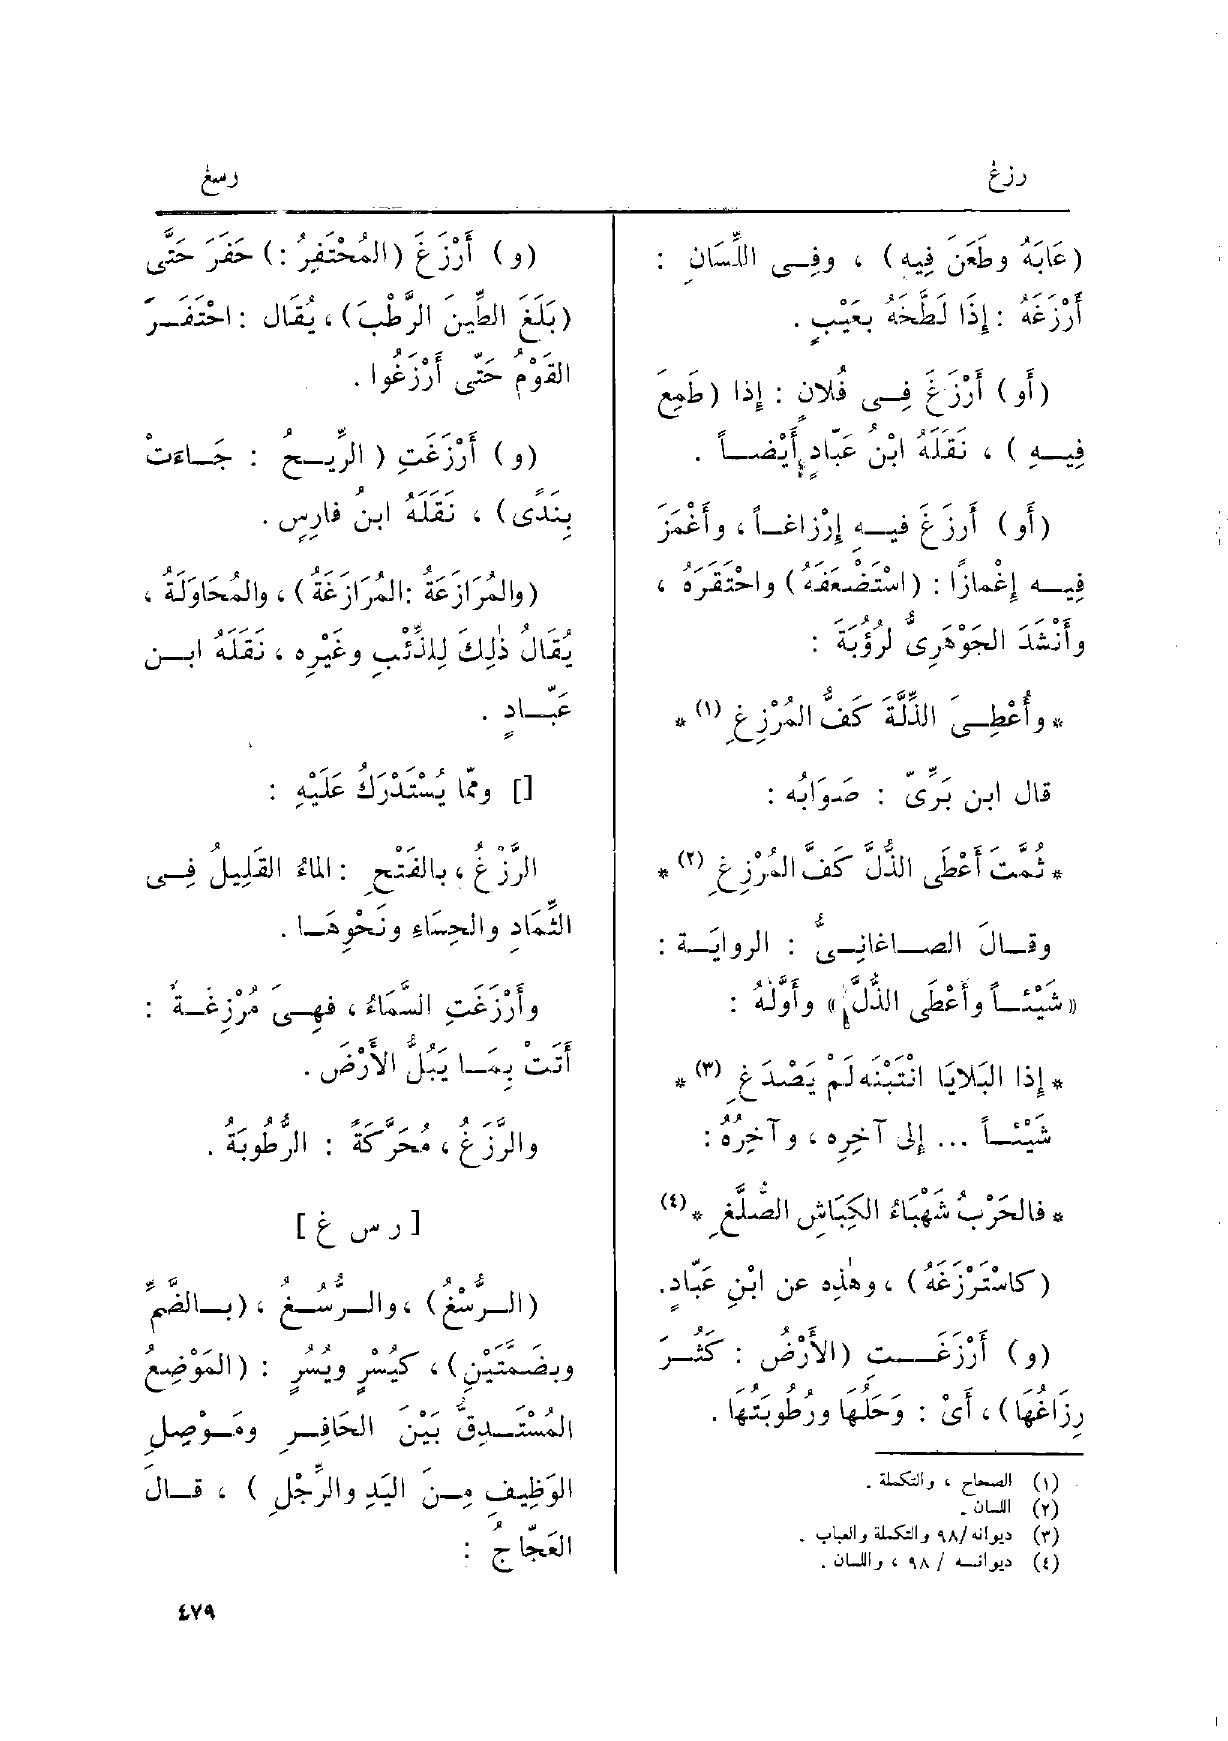 رزغ
رسغ
(عَابَهُ وطَعَنَ فِيهِ) ، وفِى اللِّسَانِ :
أَرْزَغَهُ : إِذَا لَطَّخَهُ بعَيْبٍ .
(أَو) أَرْزَغَ فِى فُلانٍ : إِذا (طَمِعَ
فِيهِ ) ، نَقَلَهُ ابْنُ عَبّادٍ أَيْضاً .
(أَو) أَرزَغَ فيهِ إِرْزاغاً ، وأَغْمَزَ
فِيهِ إِغْمازًا : (اسْتَضْعَفَهُ) واحْتَقَرَهُ ،
وأَنْشَدَ الجَوْهَرِىُّ لرُؤْبَةَ :
* وأُعْطِىَ الذِّلَّةَ كَفُّ المُرْزِغِ (١) *
قال ابن بَرِّىّ : صَوَابُه :
* ثُمَّتَ أَعْطَى الذُّلَّ كَفَّ المُرْزِغِ (٢) *
وقالَ الصاغانِىُّ : الروايَة :
«شَيْئاً وأَعْطَى الذُّلَّ» وأَوَّلُهُ :
* إِذا البَلايَا انْتَبْنَه لَمْ يَصْدَغِ (٣) *
شَيْئاً ... إِلى آخِرِه ، وآخِرُهُ :
* فالحَرْبُ شَهْبَاءُ الكِبَاشِ الصُّلَّغِ *(٤)
(كاسْتَرْزَغَهُ) ، وهٰذِه عن ابْنِ عَبّادٍ.
(و) أَرْزَغَتِ (الأَرْضُ : كَثُرَ
رِزَاغُهَا) ، أَىْ : وَحَلُهَا ورُطُوبَتُهَا .
(١) الصحاح ، والتكملة .
(٢) اللسان .
(٣) ديوانه /٩٨ والتكملة والعباب .
(٤) ديوانه / ٩٨ ، واللسان .
(و) أَرْزَغَ (المُحْتَفِرُ :) حَفَرَ حَتَّى
(بَلَغَ الطِّينَ الرَّطْبَ) ، يُقَال : احْتَفَرَ
القَوْمُ حَتّى أَرْزَغُوا .
(و) أَرْزَغَتِ ( الرِّيحُ : جَاءَتْ
بِنَدًى) ، نَقَلَهُ ابنُ فارِسٍ .
(والمُرَازَغَةُ :المُرَازَغَةُ) ، والمُحَاوَلَةُ ،
يُقَالُ ذٰلِكَ لِلذِّئْبِ وغَيْرِه ، نَقَلَهُ ابن
عَبّادٍ .
[] وممّا يُسْتَدْرَكُ عَلَيْهِ :
الرَّزْغُ ، بالفَتْحِ : الماءُ القَلِيلُ فِى
الثِّمَادِ والحِسَاءِ ونَحْوِهَا .
وأَرْزَغَتِ السَّمَاءُ ، فهِىَ مُرْزِغَةٌ :
أَتَتْ بِمَا يَبُلُّ الأَرْضَ .
والرَّزَغُ ، مُحَرَّكَةً : الرُّطُوبَةُ .
[ ر س غ ]
(الرُّسْغُ) ، والرُّسُغُ ، (بالضَّمِّ
وبضَمَّتَيْنِ) ، كيُسْرٍ ويُسُرٍ : (المَوْضِعُ
المُسْتَدِقُّ بَيْنَ الحَافِرِ ومَوْصِلِ
الوَظِيفِ مِنَ اليَدِ والرِّجْلِ ) ، قالَ
العَجّاجُ :
٤٧٩